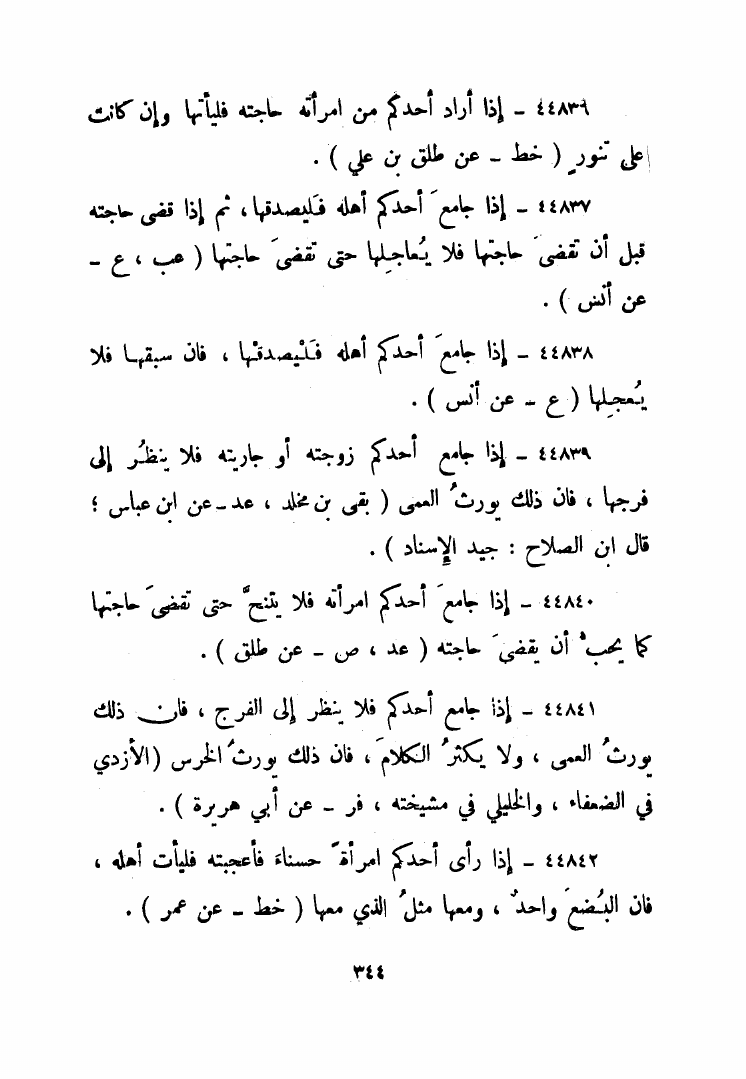 ٤٤٨٣٦ – إذا أراد أحدكم من امرأته حاجته فليأتها وإن كانت
على تنورٍ ( خط – عن طلق بن علي ) .
٤٤٨٣٧ – إذا جامعَ أحدكم أهله فَليصدقها ، ثم إذا قضى حاجته
قبل أن تقضىَ حاجتها فلا يُعاجِلها حتى تقضىَ حاجتها ( عب ، ع –
عن أنس ) .
٤٤٨٣٨ – إذا جامعَ أحدكم أهله فَلْيصدقْها ، فان سبقها فلا
يُعجِلها ( ع – عن أنس ) .
٤٤٨٣٩ – إذا جامع أحدكم زوجته أو جاريته فلا ينظُر إلى
فرجها ، فان ذلك يورثُ العمى ( بقى بن مخلد ، عد – عن ابن عباس ؛
قال ابن الصلاح : جيد الإسناد ) .
٤٤٨٤٠ – إذا جامعَ أحدكم امرأته فلا يتنحَّ حتى تقضىَ حاجتها
كما يحبُ أن يقضىَ حاجته ( عد ، ص – عن طلق ) .
٤٤٨٤١ – إذا جامع أحدكم فلا ينظر إلى الفرج ، فان ذلك
يورثُ العمى ، ولا يكثرُ الكلامَ ، فان ذلك يورثُ الخرس ( الأزدي
في الضعفاء ، والخليلي في مشيخته ، فر – عن أبي هريرة ) .
٤٤٨٤٢ – إذا رأى أحدكم امرأةً حسناءَ فأعجبته فليأت أهله ،
فان البُضعَ واحدٌ ، ومعها مثلُ الذي معها ( خط – عن عمر ) .
٣٤٤